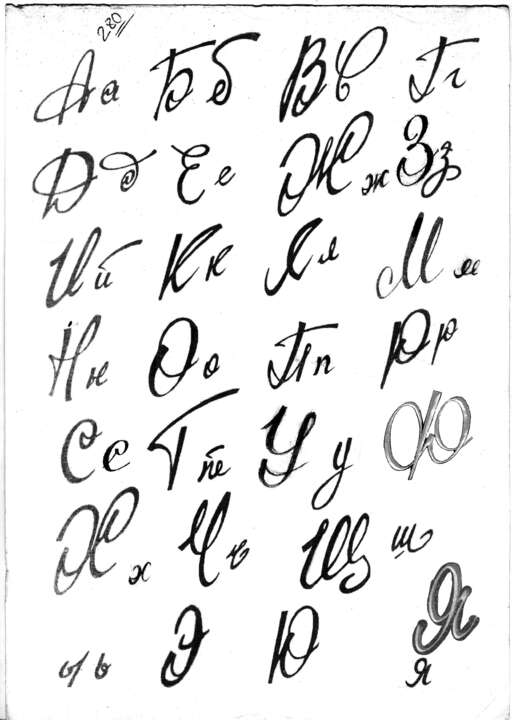 280
Аа Бб Вв Гг
Дд Ее Жж Зз
Ий Кк Лл Мм
Нн Оо Пп Рр
Сс Тт Уу Ф
Хх Чч Щш
ы ь Э Ю Я
я